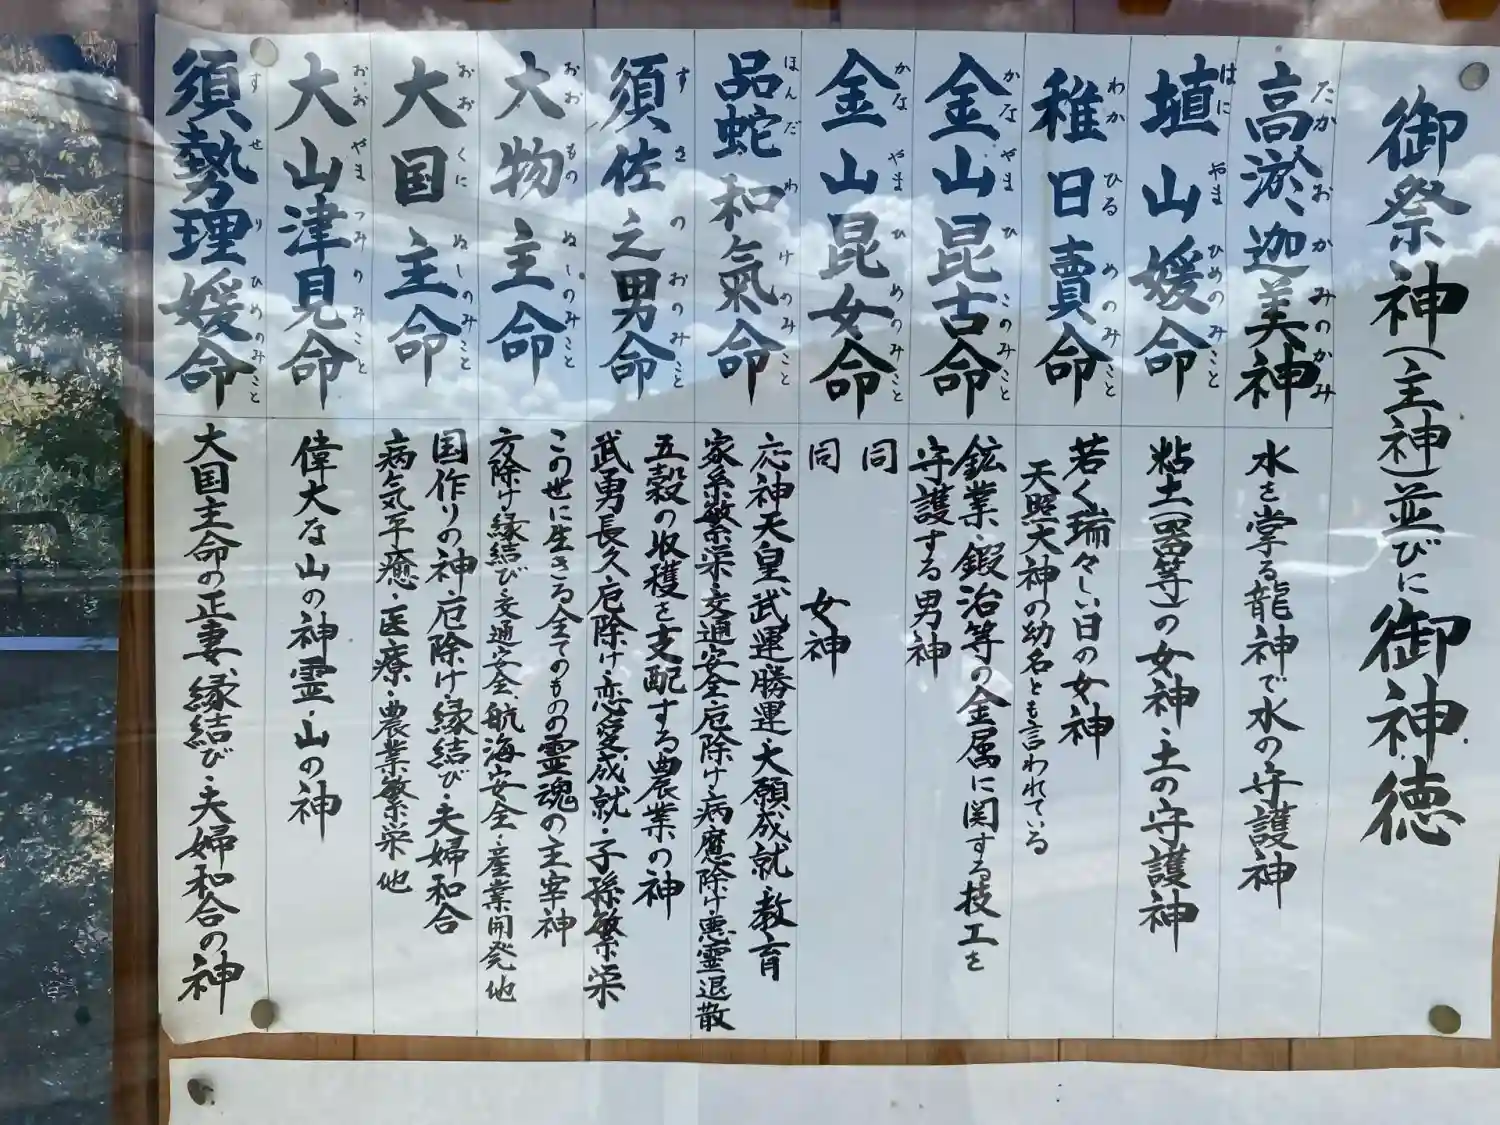 御祭神(主神)並びに御神徳
高淤迦美神
たかおかみのかみ
水を掌る龍神で水の守護神
埴山媛命
はにやまひめのみこと
粘土(器等)の女神・土の守護神
稚日賣命
わかひるめのみこと
若く瑞々しい日の女神
天照大神の幼名とも言われている
金山昆古命
かなやまひこのみこと
鉱業、鍜冶等の金属に関する技工を
守護する男神
金山昆女命
かなやまひめのみこと
同
同 女神
品蛇和氣命
ほんだわけのみこと
応神天皇、武運勝運・大願成就・教育
家系繁栄・交通安全・厄除け・病魔除け・悪霊退散
須佐之男命
すさのおのみこと
五穀の収穫を支配する農業の神
武勇長久厄除け・恋愛成就・子孫繁栄
大物主命
おおものぬしのみこと
この世に生きる全てのものの霊魂の主宰神
方除け縁結び・交通安全、航海安全・産業開発他
大国主命
おおくにぬしのみこと
国作りの神・厄除け・縁結び・夫婦和合
病気平癒・医療・農業繁栄他
大山津見命
おおやまつみのみこと
偉大な山の神霊・山の神
須勢理媛命
すせりひめのみこと
大国主命の正妻、縁結び・夫婦和合の神